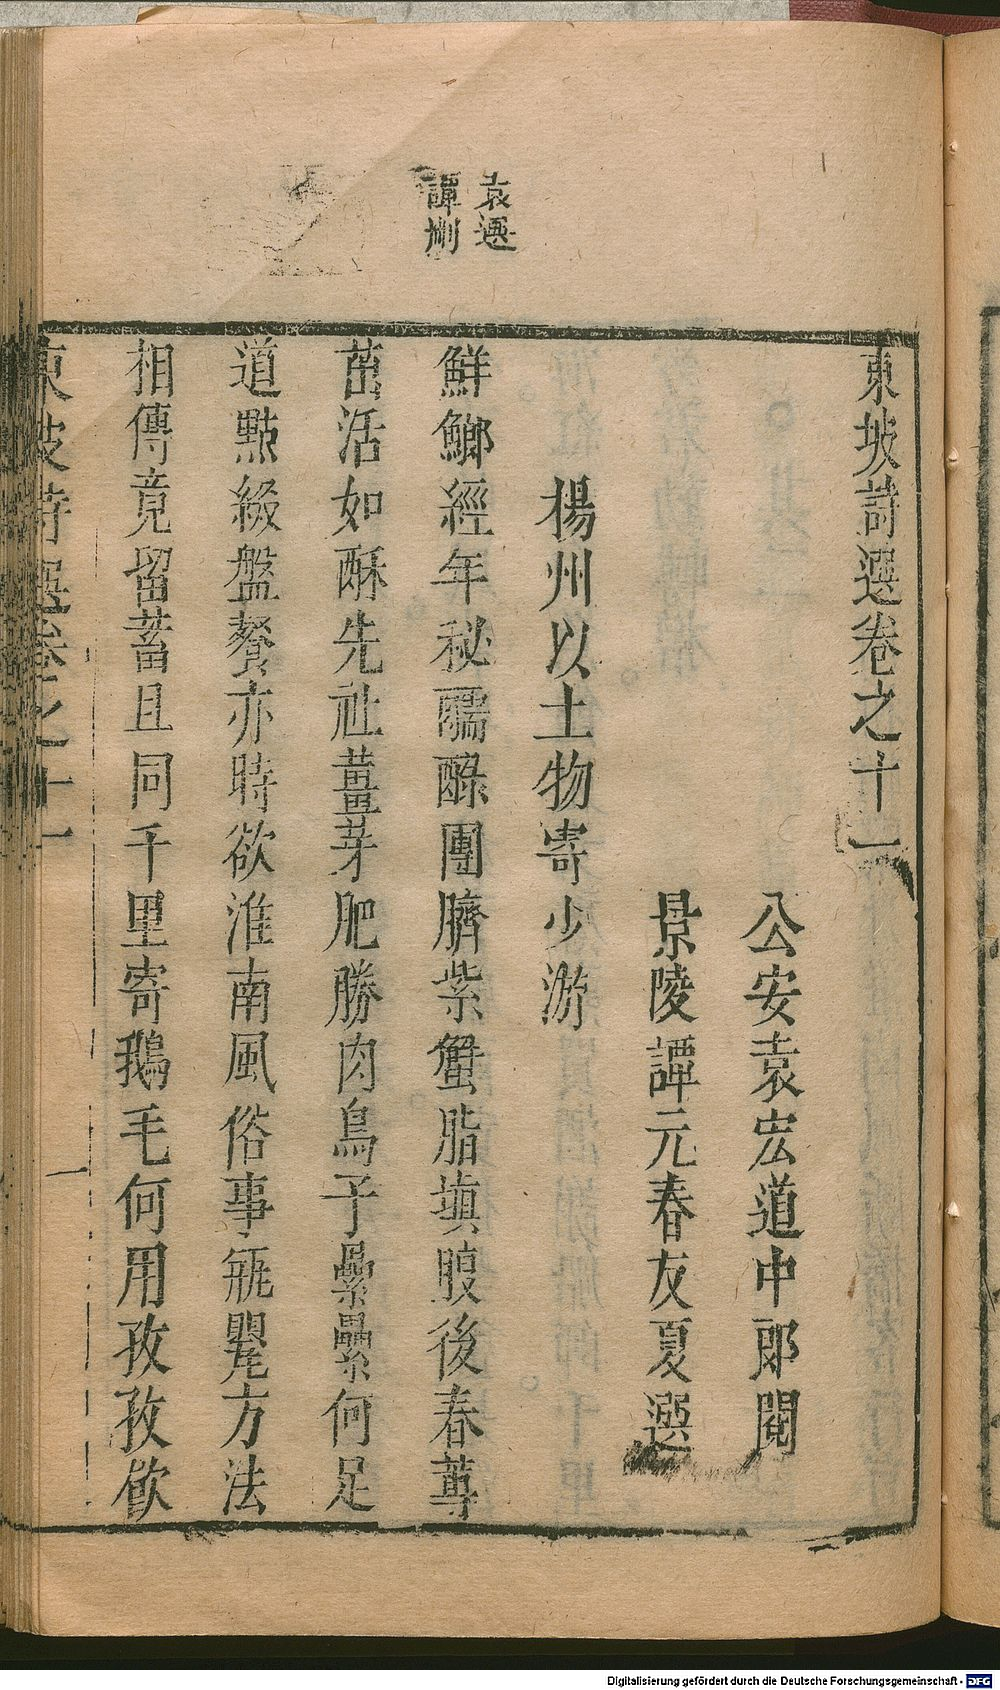 袁選
譚刪
東坡詩選卷之十一
公安袁宏道中郎閱
景陵譚元春友夏選
揚州以土物寄少游
鮮鯽經年秘醽醁團臍紫蟹脂填腹後春蓴
茁活如酥先社薑芽肥勝肉鳥子纍纍何足
道點綴盤餐亦時欲淮南風俗事瓶罌方法
相傳竟留蓄且同千里寄鵝毛何用孜孜飲
東坡詩選卷之十一
一
Digitalisierung gefördert durch die Deutsche Forschungsgemeinschaft - DFG